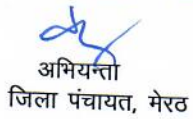 अभियन्ता
जिला पंचायत, मेरठ